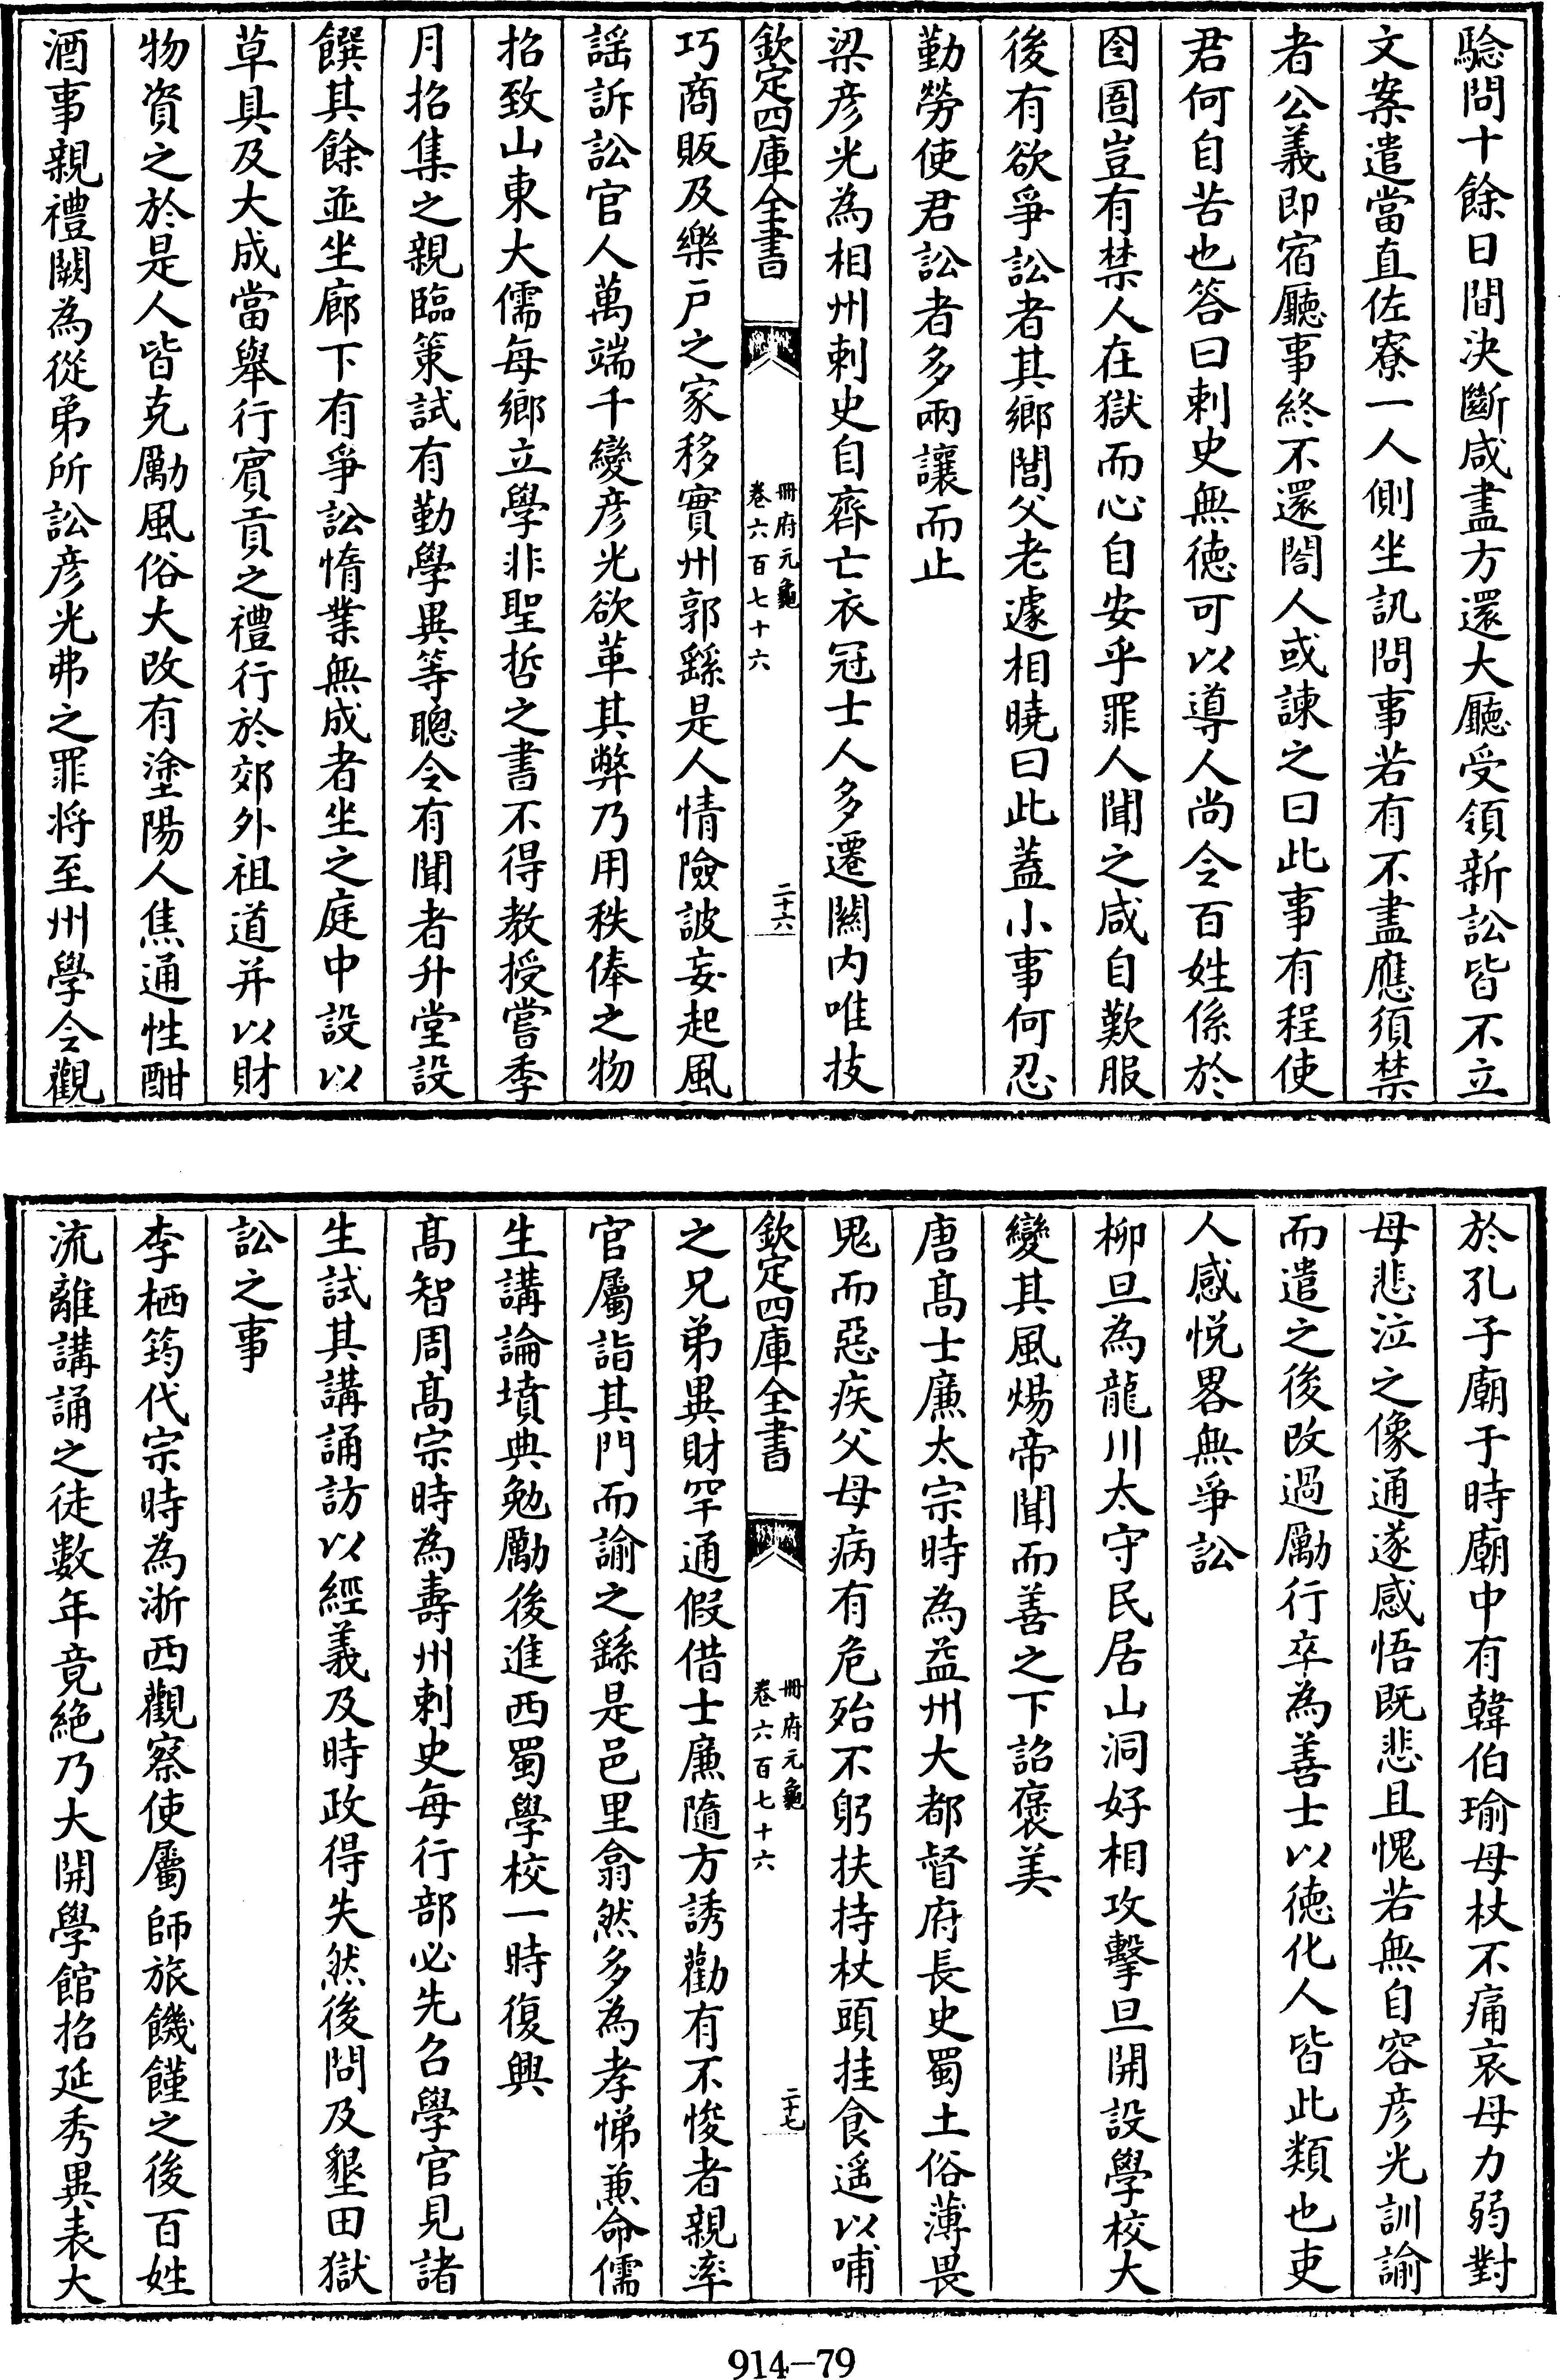 騐問十餘日間決斷咸盡方還大廳受領新訟皆不立
文案遣當直佐寮一人側坐訊問事若有不盡應須禁
者公義即宿廳事終不還閤人或諫之曰此事有程使
君何自苦也答曰刺史無徳可以導人尚令百姓係於
囹圄豈有禁人在獄而心自安乎罪人聞之咸自歎服
後有欲爭訟者其鄉閭父老遽相曉曰此蓋小事何忍
勤勞使君訟者多兩讓而止
梁彦光為相州刺史自齊亡衣冠士人多遷關内唯技
欽定四庫全書
冊府元龜
卷六百七十六
二十六
巧商販及樂戸之家移實州郭繇是人情險詖妄起風
謡訴訟官人萬端千變彦光欲革其弊乃用秩俸之物
招致山東大儒每鄉立學非聖哲之書不得教授嘗季
月招集之親臨䇿試有勤學異等聰令有聞者升堂設
饌其餘並坐廊下有爭訟惰業無成者坐之庭中設以
草具及大成當舉行賓貢之禮行於郊外祖道并以財
物資之於是人皆克勵風俗大改有塗陽人焦通性酣
酒事親禮闕為從弟所訟彦光弗之罪将至州學令觀
於孔子廟于時廟中有韓伯瑜母杖不痛哀母力弱對
母悲泣之像通遂感悟既悲且愧若無自容彦光訓諭
而遣之後改過勵行卒為善士以徳化人皆此類也吏
人感悦畧無爭訟
柳旦為龍川太守民居山洞好相攻擊旦開設學校大
變其風煬帝聞而善之下詔褒美
唐髙士廉太宗時為益州大都督府長史蜀土俗薄畏
鬼而惡疾父母病有危殆不躬扶持杖頭挂食遥以哺
欽定四庫全書
冊府元龜
卷六百七十六
二十七
之兄弟異財罕通假借士廉隨方誘勸有不悛者親率
官屬詣其門而諭之繇是邑里翕然多為孝悌兼命儒
生講論墳典勉勵後進西蜀學校一時復興
髙智周髙宗時為壽州刺史每行部必先召學官見諸
生試其講誦訪以經義及時政得失然後問及墾田獄
訟之事
李栖筠代宗時為浙西觀察使屬師旅饑饉之後百姓
流離講誦之徒数年竟絶乃大開學館招延秀異表大
914-79